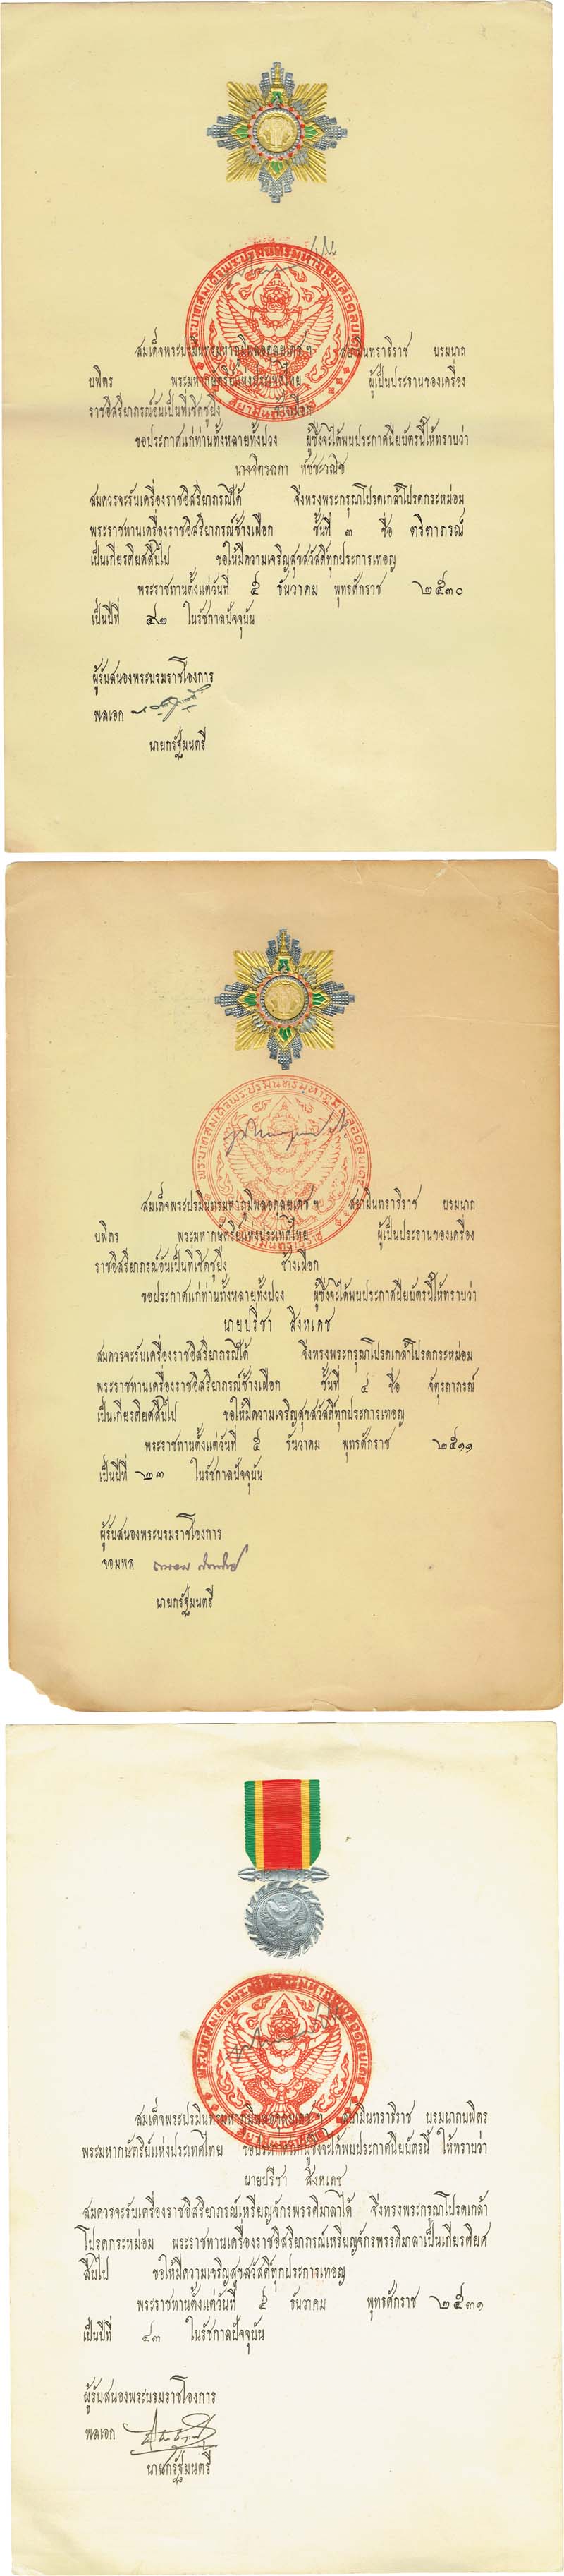 พระบาทสมเด็จพระปรมินทรมหาภูมิพลอดุลยเดช
สยามินทราธิราช
สมเด็จพระปรมินทรมหาภูมิพลอดุลยเดช ฯ สยามินทราธิราช บรมนาถ
บพิตร พระมหากษัตริย์แห่งประเทศไทย ผู้เป็นประธานของเครื่อง
ราชอิสริยาภรณ์อันเป็นที่เชิดชูยิ่ง ช้างเผือก
ขอประกาศแก่ท่านทั้งหลายทั้งปวง ผู้ซึ่งจะได้พบประกาศนียบัตรนี้ให้ทราบว่า
นางจิตรลดา
สมควรจะรับเครื่องราชอิสริยาภรณ์ได้ จึ่งทรงพระกรุณาโปรดเกล้าโปรดกระหม่อม
พระราชทานเครื่องราชอิสริยาภรณ์ช้างเผือก ชั้นที่ ๓ ชื่อ ตริตาภรณ์
เป็นเกียรติยศสืบไป ขอให้มีความเจริญสุขสวัสดิ์ทุกประการเทอญ
พระราชทานตั้งแต่วันที่ ๕ ธันวาคม พุทธศักราช ๒๕๓๐
เป็นปีที่ ๔๒ ในรัชกาลปัจจุบัน
ผู้รับสนองพระบรมราชโองการ
พลเอก
นายกรัฐมนตรี
พระบาทสมเด็จพระปรมินทรมหาภูมิพลอดุลยเดช
สยามินทราธิราช
สมเด็จพระปรมินทรมหาภูมิพลอดุลยเดช ฯ สยามินทราธิราช บรมนาถ
บพิตร พระมหากษัตริย์แห่งประเทศไทย ผู้เป็นประธานของเครื่อง
ราชอิสริยาภรณ์อันเป็นที่เชิดชูยิ่ง ช้างเผือก
ขอประกาศแก่ท่านทั้งหลายทั้งปวง ผู้ซึ่งจะได้พบประกาศนียบัตรนี้ให้ทราบว่า
นายปรีชา สิงหเดช
สมควรจะรับเครื่องราชอิสริยาภรณ์ได้ จึ่งทรงพระกรุณาโปรดเกล้าโปรดกระหม่อม
พระราชทานเครื่องราชอิสริยาภรณ์ช้างเผือก ชั้นที่ ๔ ชื่อ จัตุรถาภรณ์
เป็นเกียรติยศสืบไป ขอให้มีความเจริญสุขสวัสดิ์ทุกประการเทอญ
พระราชทานตั้งแต่วันที่ ๕ ธันวาคม พุทธศักราช ๒๕๑๑
เป็นปีที่ ๒๓ ในรัชกาลปัจจุบัน
ผู้รับสนองพระบรมราชโองการ
จอมพล
นายกรัฐมนตรี
พระบาทสมเด็จพระปรมินทรมหาภูมิพลอดุลยเดช
สยามินทราธิราช
สมเด็จพระปรมินทรมหาภูมิพลอดุลยเดช ฯ สยามินทราธิราช บรมนาถบพิตร
พระมหากษัตริย์แห่งประเทศไทย ขอประกาศแก่ผู้ซึ่งจะได้พบประกาศนียบัตรนี้ ให้ทราบว่า
นายปรีชา สิงหเดช
สมควรจะรับเครื่องราชอิสริยาภรณ์เหรียญจักรพรรดิมาลาได้ จึ่งทรงพระกรุณาโปรดเกล้า
โปรดกระหม่อม พระราชทานเครื่องราชอิสริยาภรณ์เหรียญจักรพรรดิมาลาเป็นเกียรติยศ
สืบไป ขอให้มีความเจริญสุขสวัสดิ์ทุกประการเทอญ
พระราชทานตั้งแต่วันที่ ๕ ธันวาคม พุทธศักราช ๒๕๓๑
เป็นปีที่ ๔๓ ในรัชกาลปัจจุบัน
ผู้รับสนองพระบรมราชโองการ
พลเอก
นายกรัฐมนตรี